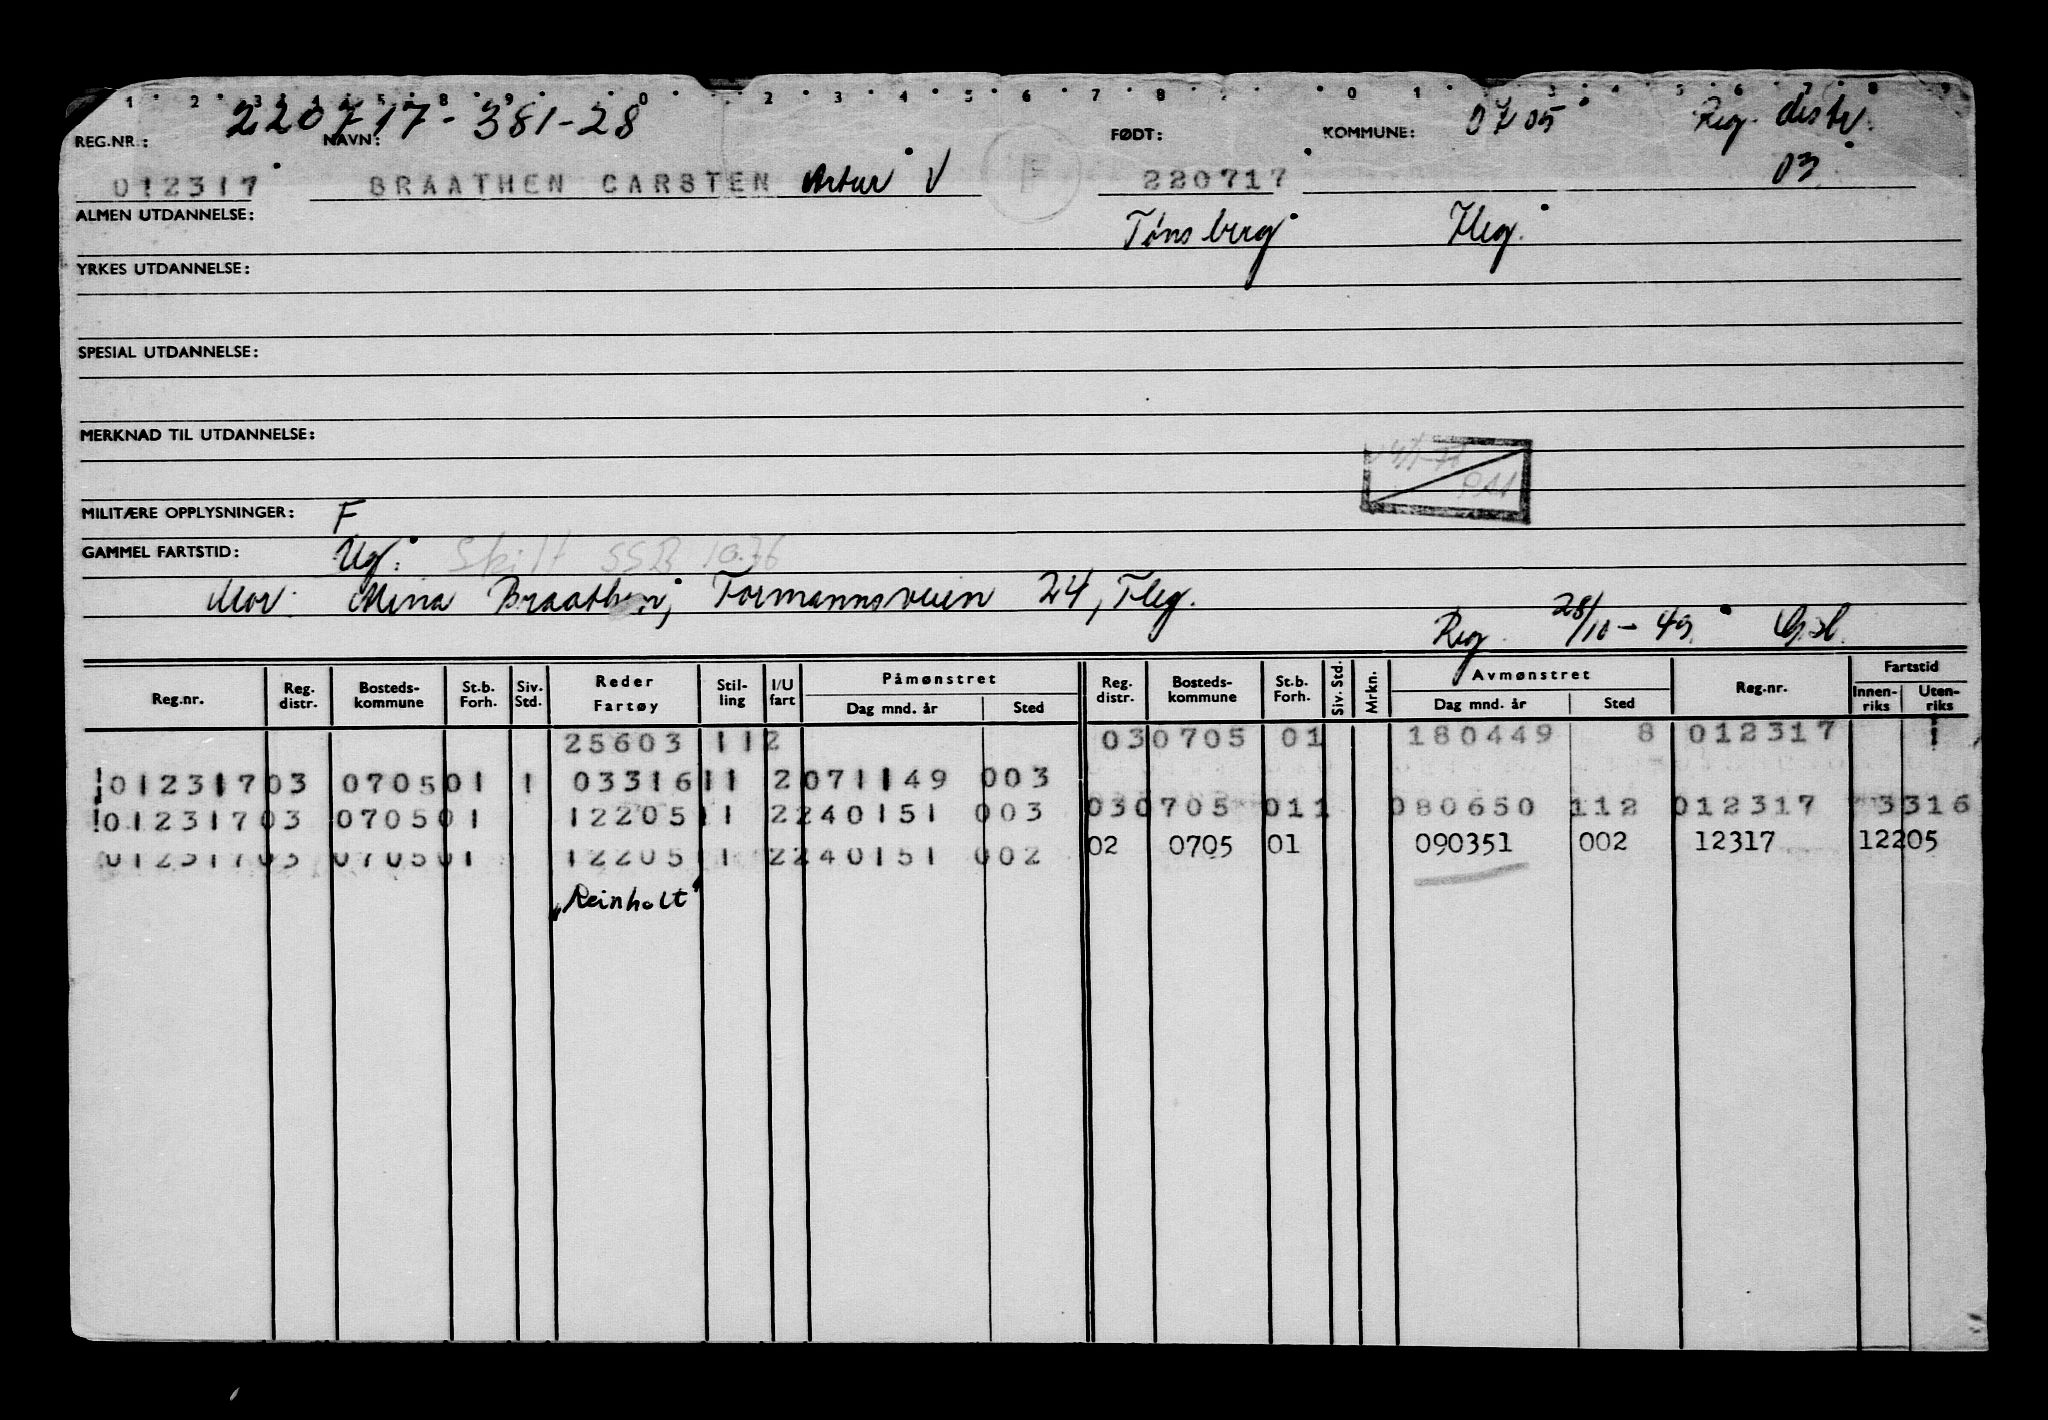 1 2 3 4 5 8 9 0 2 3 4 5 6 7 8 0 1 3 5 6 7 8 9
220717-381-28 0705 Reg. distr.
REG.NR.: NAVN: FØDT: KOMMUNE: 03
012317 BRAATHEN CARSTEN Artur V F 220717
ALMEN UTDANNELSE: Tønsberg
YRKES UTDANNELSE:
SPESIAL UTDANNELSE:
MERKNAD TIL UTDANNELSE:
MILITÆRE OPPLYSNINGER: F
GAMMEL FARTSTID: Ug: Skilt SSB 10.76
Mor: Mina Braathen, Formannsveien 24, Tbg.
Reg. 28/10-49
Reg.nr. Reg. distr. Bosteds-kommune St.b. Forh. Siv. Std. Reder Fartøy Stil-ling I/U fart Påmønstret Dag mnd. år Sted Reg. distr. Bosteds-kommune St.b. Forh. Siv. Std. Mrkn. Avmønstret Dag mnd. år Sted Reg.nr. Fartstid Innen-riks Uten-riks
25603 11 2 03 0705 01 180449 8 012317 1
! 012317 03 0705 01 1 03316 11 2 071149 003
! 012317 03 0705 01 12205 11 2 240151 003 03 0705 01 1 080650 112 012317 3316
012317 03 0705 01 12205 11 2 240151 002 02 0705 01 090351 002 12317 12205
"Reinholt"